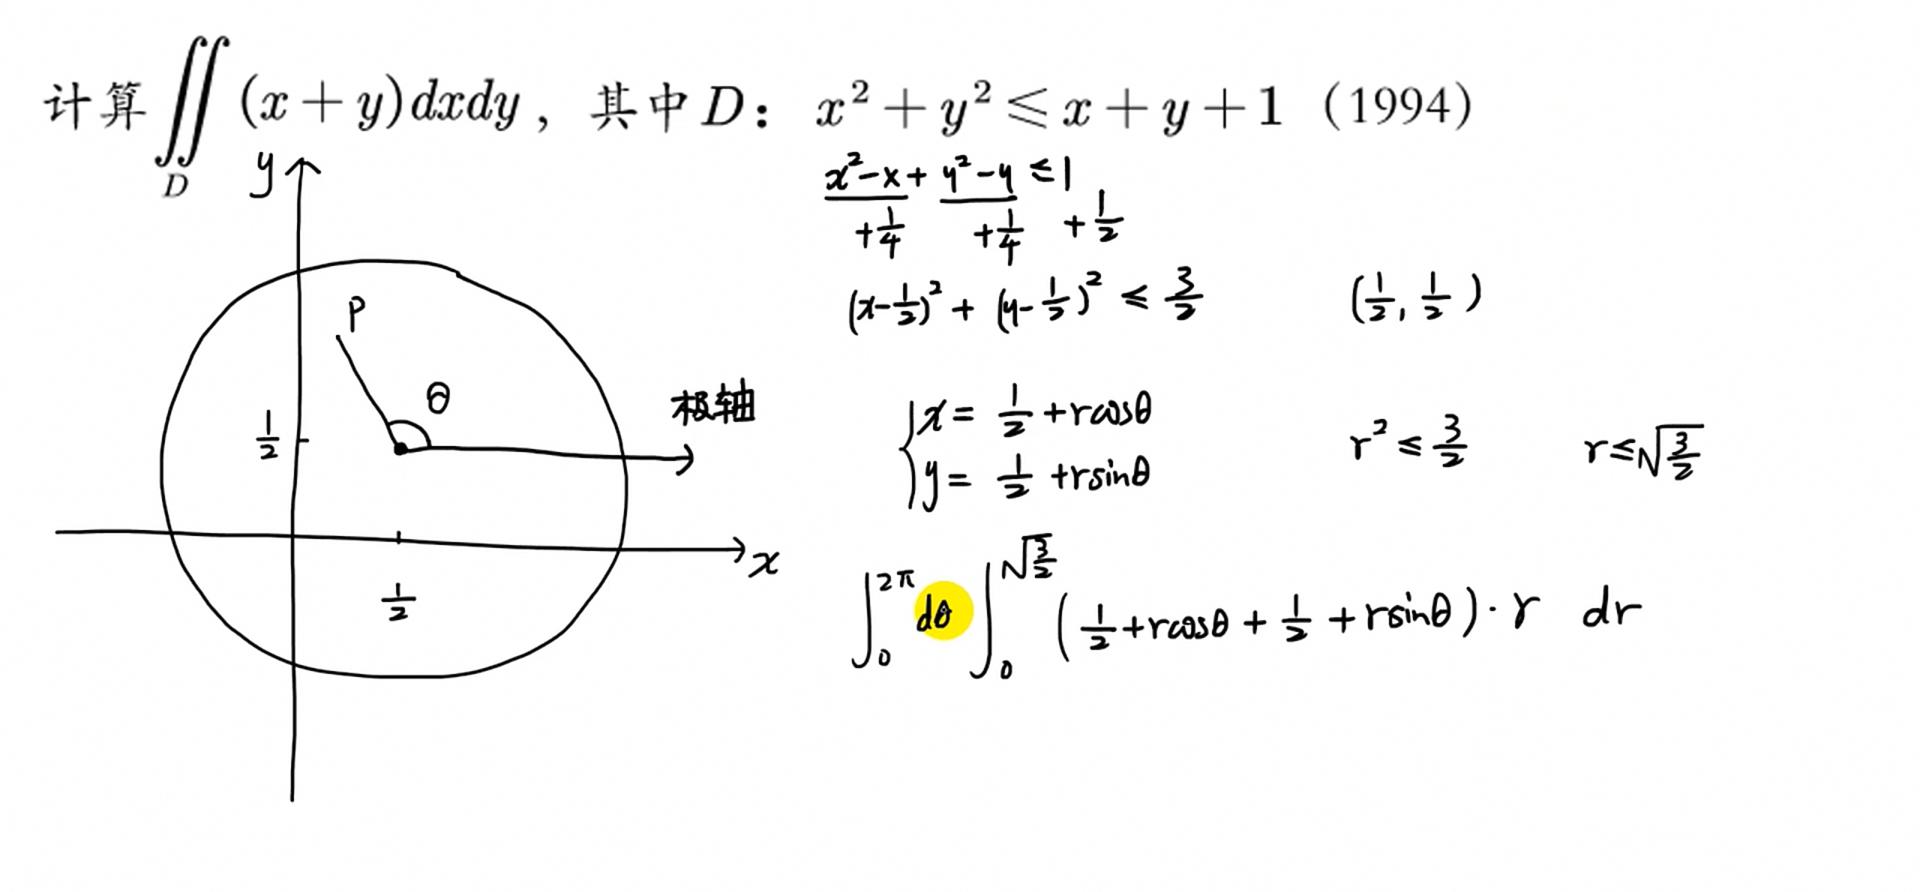 计算∬(x+y)dxdy，其中D：x²+y²⩽x+y+1（1994）
D
y
x²-x+y²-y≤1
+1/4 +1/4 +1/2
(x-1/2)²+(y-1/2)²≤3/2 (1/2,1/2)
P
θ
极轴
1/2
{x=1/2+rcosθ
y=1/2+rsinθ
r²≤3/2 r≤√(3/2)
x
1/2
∫₀^2π dθ ∫₀^√(3/2) (1/2+rcosθ+1/2+rsinθ)·r dr